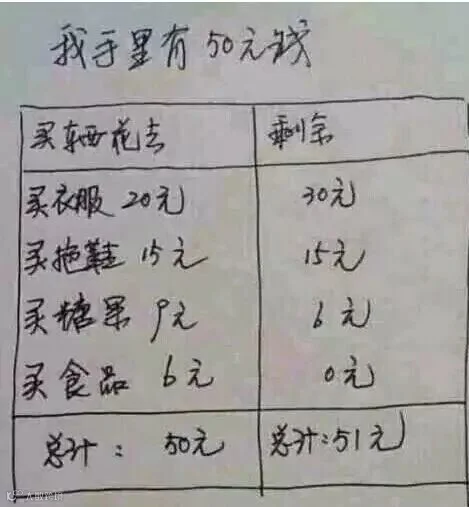 我手里有50元钱
买东西花去 剩余
买衣服 20元 30元
买拖鞋 15元 15元
买糖果 9元 6元
买食品 6元 0元
总计： 50元 总计：51元